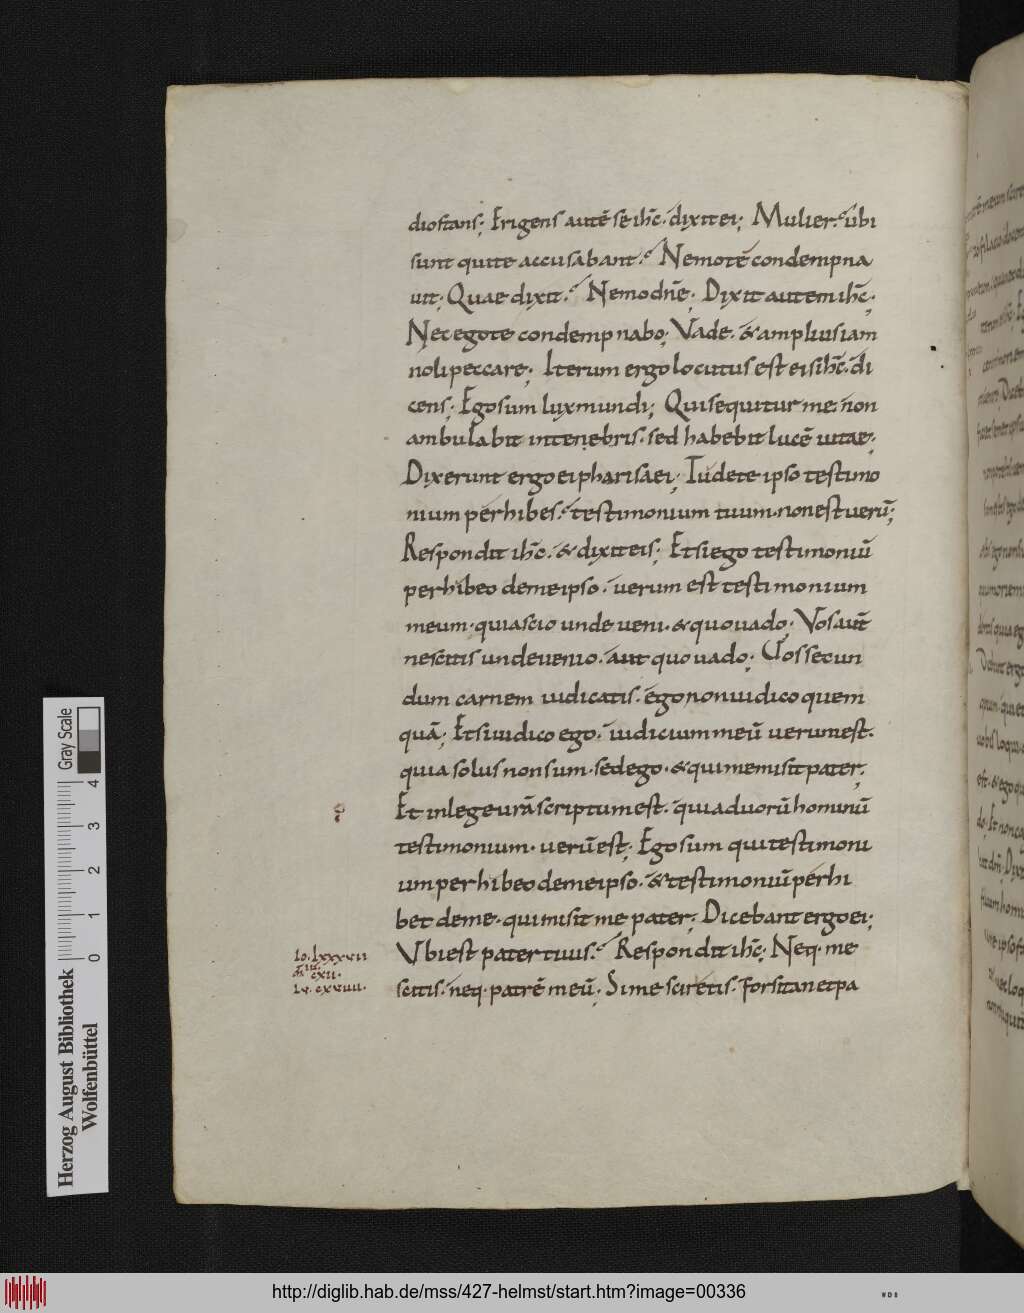 dio stans; Erigens autē se ih̄c. dixit ei; Mulier. ubi
sunt qui te accusabant? Nemo tē condempna
uit; Quae dixit? Nemo dn̄e; Dixit autem ih̄c;
Nec ego te condempnabo; Vade. & amplius iam
noli peccare; Iterum ergo locutus est eis ih̄c. di
cens; Ego sum lux mundi; Qui sequitur me. non
ambulabit in tenebris. sed habebit lucē uitae;
Dixerunt ergo ei pharisaei; Tu de te ipso testimo
nium perhibes. testimonium tuum. non est uerū;
Respondit ih̄c. & dixit eis; Et si ego testimoniū
perhibeo de me ipso. uerum est testimonium
meum. quia scio unde ueni. & quo uado; Vos autē
nescitis unde uenio. aut quo uado; Vos secun
dum carnem iudicatis. ego non iudico quem
quā; Et si iudico ego. iudicium meū uerum est.
quia solus non sum. sed ego. & qui me misit pater;
Et in lege urā scriptum est. quia duorū hominū
testimonium. uerū est; Ego sum qui testimoni
um perhibeo de me ipso. & testimoniū perhi
bet de me. qui misit me pater; Dicebant ergo ei;
Io. lxxxvii
Vbi est pater tuus? Respondit ih̄c; Neq. me
cxii.
scitis. neq. patrē meū; Si me sciretis. forsitan et pa
Herzog August Bibliothek
Wolfenbüttel
0 1 2 3 4
Gray Scale
http://diglib.hab.de/mss/427-helmst/start.htm?image=00336